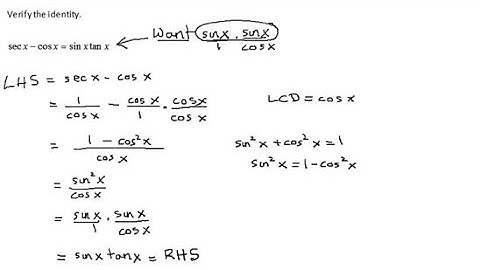 Verify the identity.
sec x − cos x = sin x tan x ← Want sinx/1 · sinx/cosx
LHS = sec x - cos x
= 1/cosx − cosx/1 · cosx/cosx    LCD = cos x
= (1 − cos²x)/cosx    sin²x + cos²x = 1
sin²x = 1 - cos²x
= sin²x/cosx
= sinx/1 · sinx/cosx
= sinx tanx = RHS